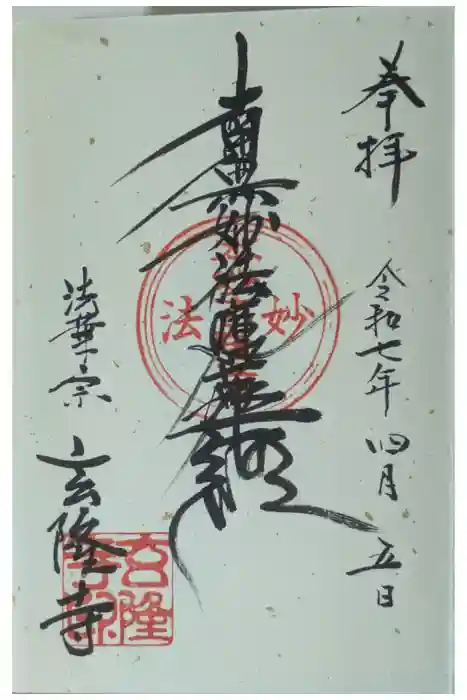 奉拝
令和七年 四月 五日
南無妙法蓮華経
妙法
法華宗
玄隆寺
玄隆
寺印